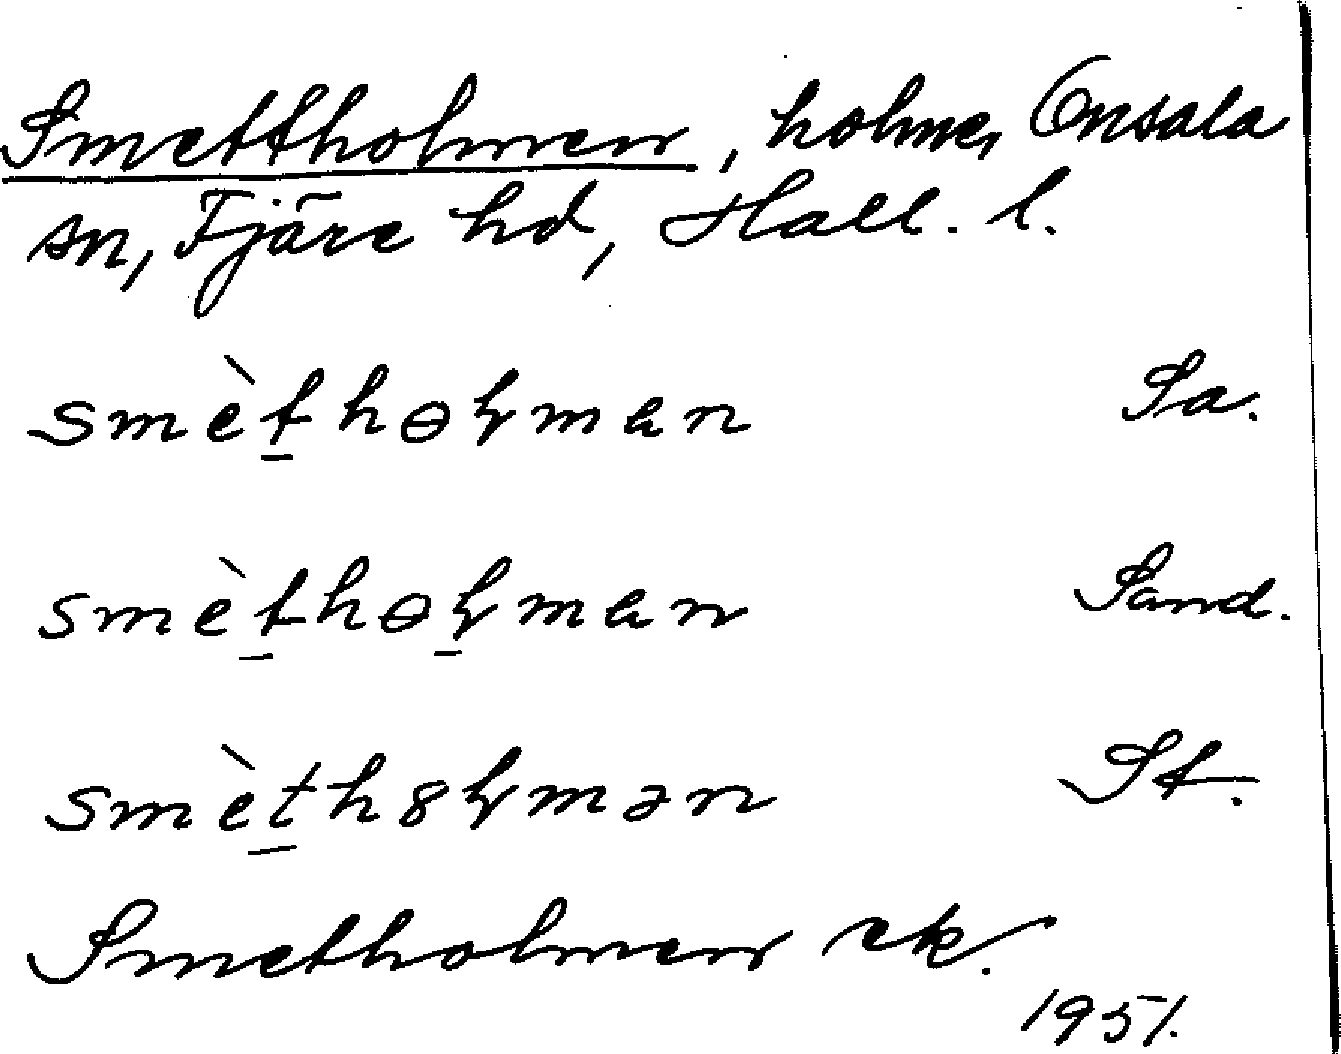 Smettholmen, holme, Onsala
sn, Fjäre hd, Hall. l.
smètho̵ɫman Sa.
smèthɵɫman Sand.
smèth8ɫmən St.
Smetholmen ek.
1951.